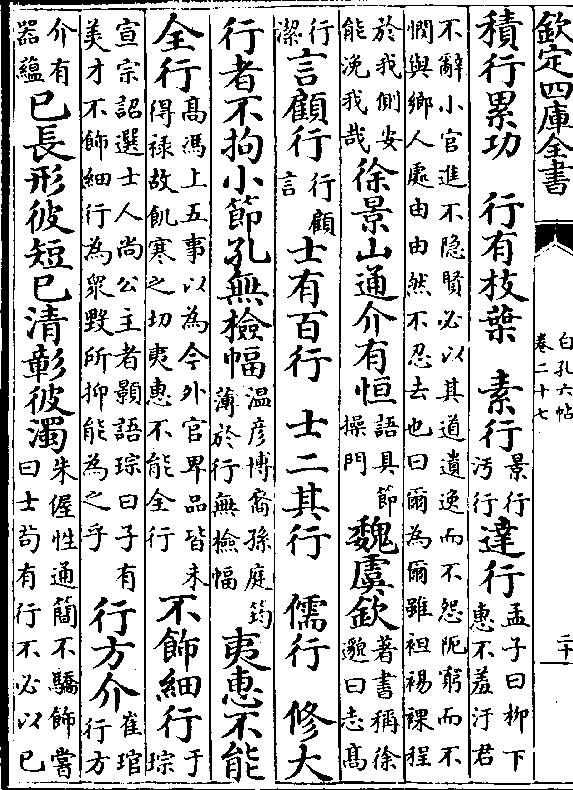 欽定四庫全書
白孔六帖
卷二十七
二十
積行累功　行有枝葉　素行景行汚行達行孟子曰柳下惠不羞汙君
不辭小官進不隐賢必以其道遺逸而不怨阨窮而不憫與鄉人處由由然不忍去也曰爾為爾雖袒裼裸裎
於我側安能浼我哉徐景山通介有恒語具節操門魏盧欽著書稱徐邈曰志髙
行潔言顧行行顧言士有百行　士二其行　儒行　修大
行者不拘小節孔無檢幅温彦博裔孫庭筠薄於行無檢幅夷惠不能
全行髙馮上五事以為今外官畀品皆未得禄故飢寒之切夷惠不能全行不飾細行于琮
宣宗詔選士人尚公主者顥語琮曰子有美才不飾細行為衆毀所抑能為之乎行方介崔琯行方
介有器藴已長形彼短已清彰彼濁朱偓性通簡不驕飾嘗曰士茍有行不必以已